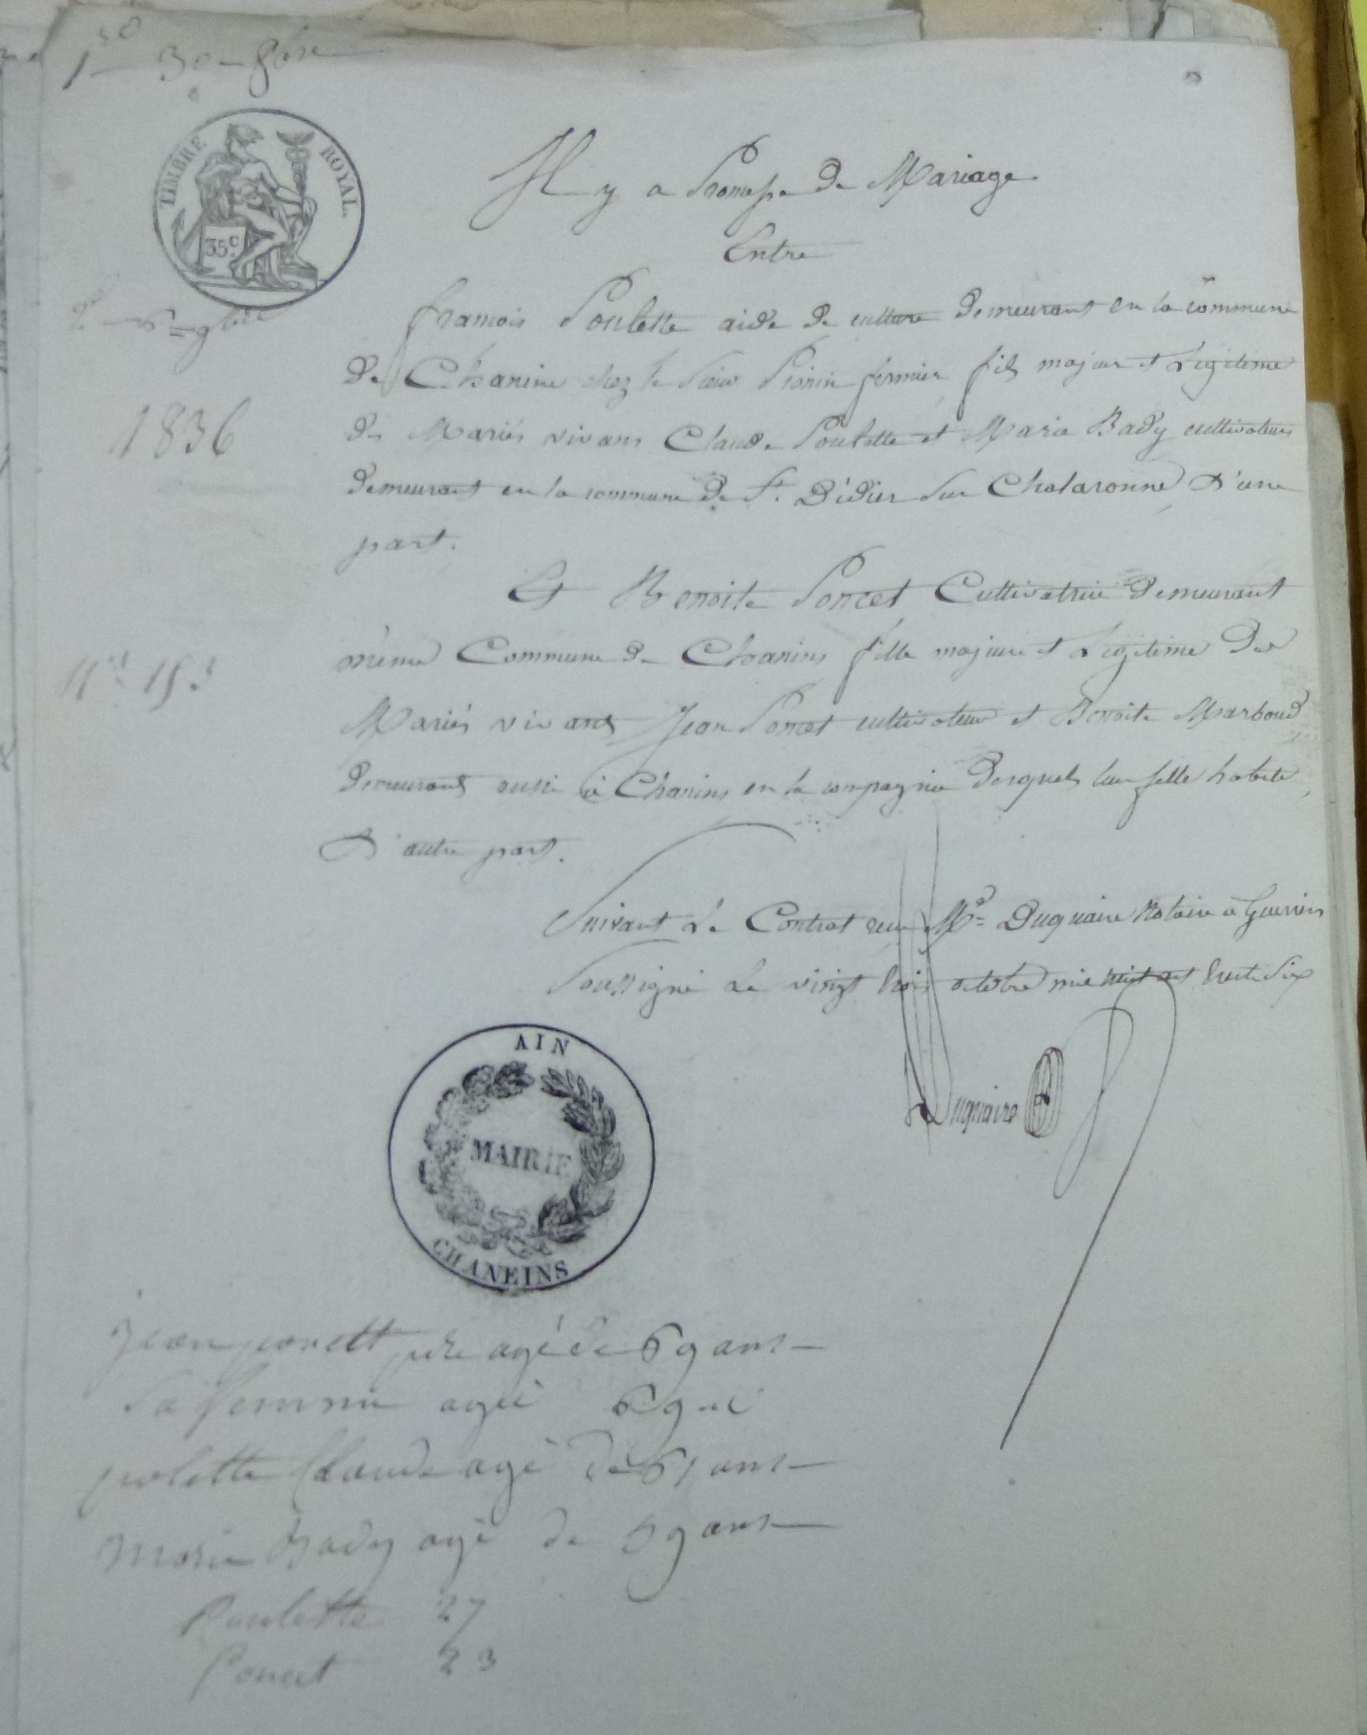 1re 30 8bre
TIMBRE ROYAL.
35c.
Il y a Promesse de Mariage
Entre
2e 6 9bre
francois Poulette aide de culture demeurant en la commune
de Chanins chez le Sieur fermier, fils majeur et Légitime
1836
des Mariés vivans Claude Poulette et Marie Bady cultivateurs
demeurant en la commune de St. Didier sur Chalaronne, D'une
part.
Et Benoite Poncet Cultivatrice demeurant
même Commune de Chanins fille majeure et Légitime des
Mariés vivans Jean Poncet cultivateur et Benoite Marboud
demeurant aussi à Chanins en la compagnie desquels leur fille habite,
D'autre part.
Suivant Le Contrat reçu Me Duquaire Notaire à Guereins
Soussigné Le vingt trois octobre mil huit cent trente Six
Duquaire
AIN
MAIRIE
CHANEINS
jean poncett père agé de 69 ans
Sa femme agée 69
polette Claude agé de 61 ans
marie Bady agé de 59 ans
Poulette 27
Poncet 23